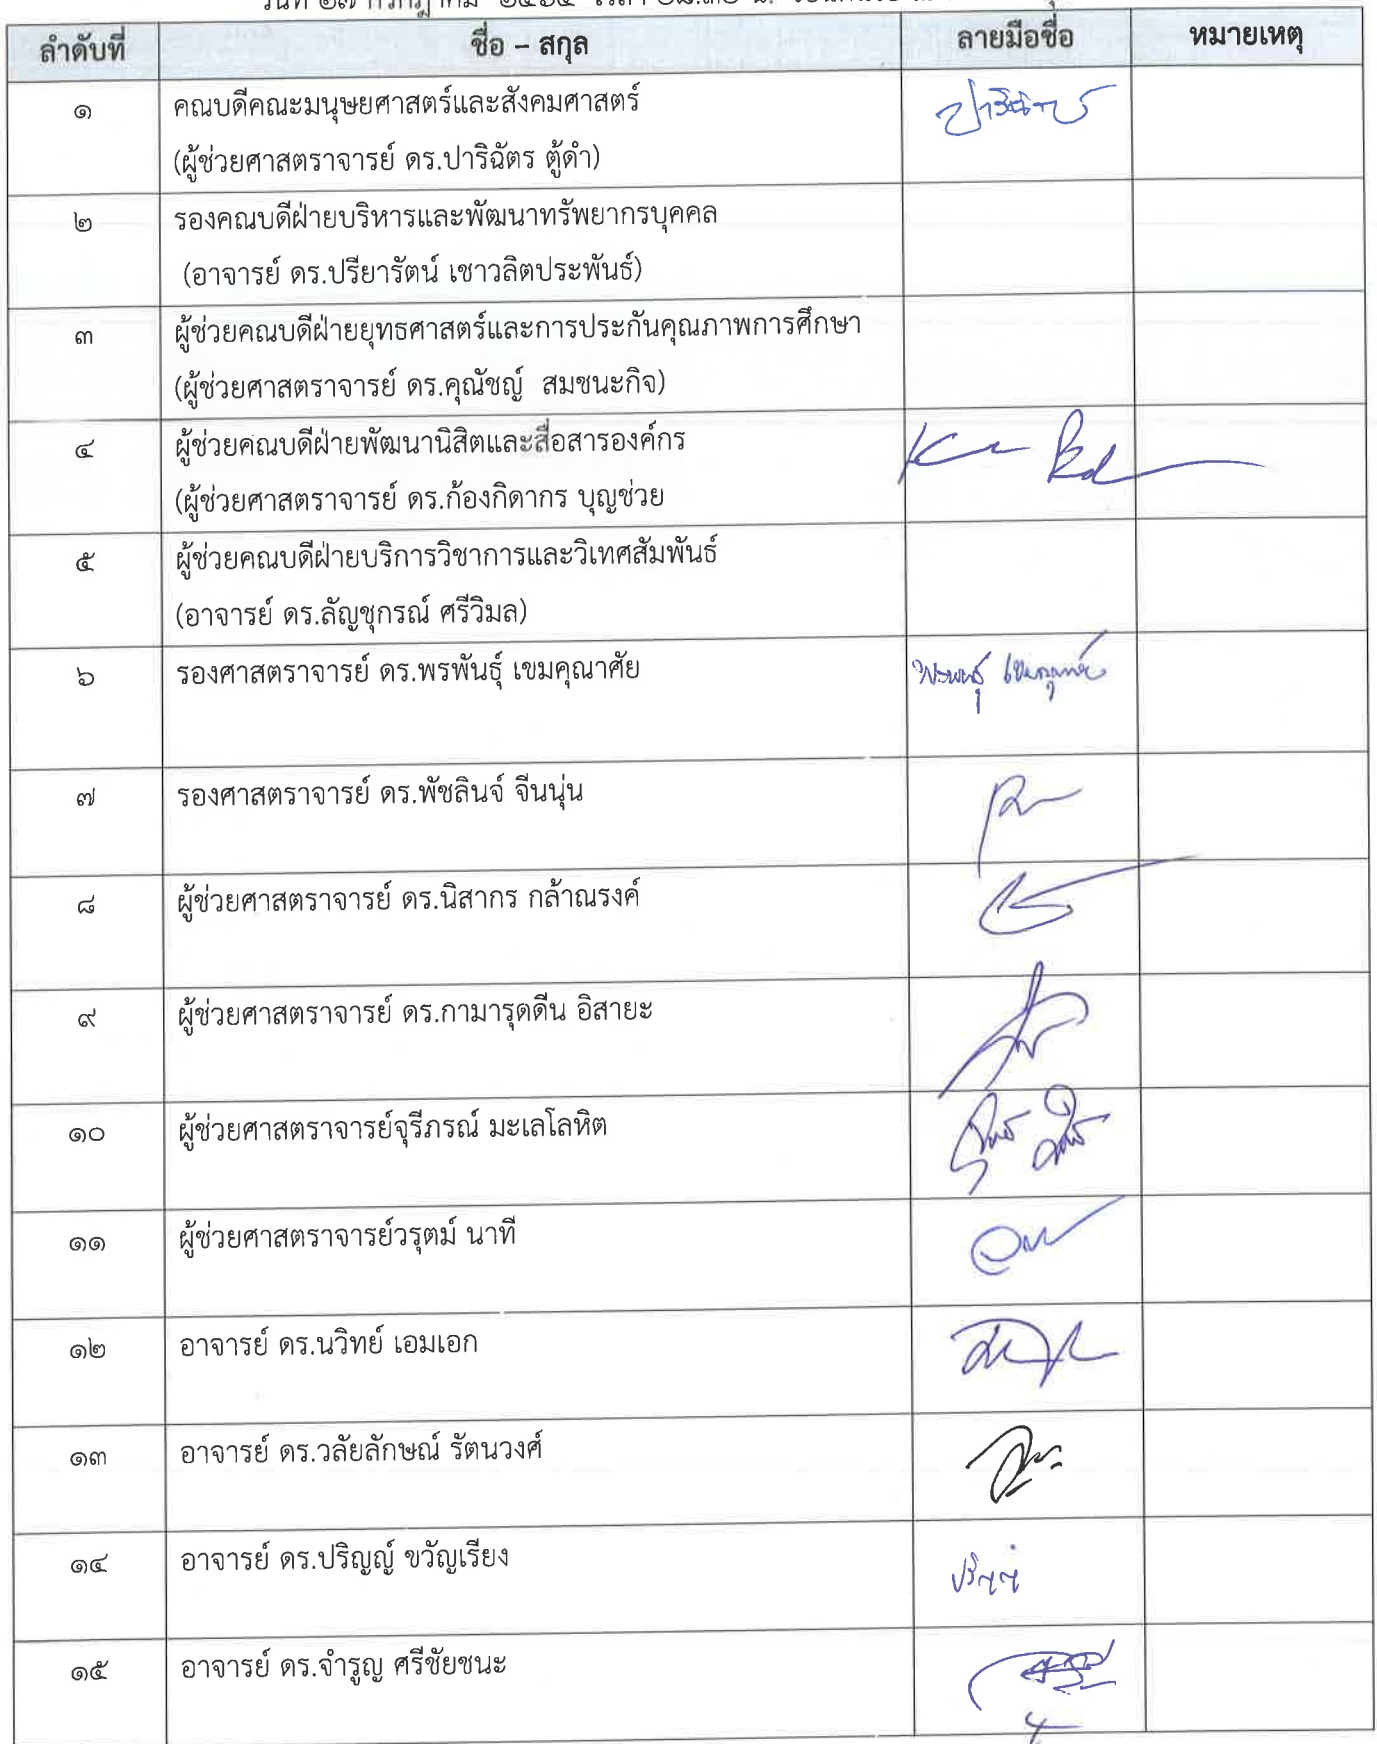 ลำดับที่ ชื่อ – สกุล ลายมือชื่อ หมายเหตุ
๑ คณบดีคณะมนุษยศาสตร์และสังคมศาสตร์
(ผู้ช่วยศาสตราจารย์ ดร.ปาริฉัตร ตู้ดำ)
๒ รองคณบดีฝ่ายบริหารและพัฒนาทรัพยากรบุคคล
(อาจารย์ ดร.ปรียารัตน์ เชาวลิตประพันธ์)
๓ ผู้ช่วยคณบดีฝ่ายยุทธศาสตร์และการประกันคุณภาพการศึกษา
(ผู้ช่วยศาสตราจารย์ ดร.คุณัชญ์ สมชนะกิจ)
๔ ผู้ช่วยคณบดีฝ่ายพัฒนานิสิตและสื่อสารองค์กร
(ผู้ช่วยศาสตราจารย์ ดร.ก้องกิดากร บุญช่วย
๕ ผู้ช่วยคณบดีฝ่ายบริการวิชาการและวิเทศสัมพันธ์
(อาจารย์ ดร.ลัญชุกรณ์ ศรีวิมล)
๖ รองศาสตราจารย์ ดร.พรพันธุ์ เขมคุณาศัย พรพันธุ์ เขมคุณาศัย
๗ รองศาสตราจารย์ ดร.พัชลินจ์ จีนนุ่น
๘ ผู้ช่วยศาสตราจารย์ ดร.นิสากร กล้าณรงค์
๙ ผู้ช่วยศาสตราจารย์ ดร.กามารุดดีน อิสายะ
๑๐ ผู้ช่วยศาสตราจารย์จุรีภรณ์ มะเลโลหิต
๑๑ ผู้ช่วยศาสตราจารย์วรุตม์ นาที
๑๒ อาจารย์ ดร.นวิทย์ เอมเอก
๑๓ อาจารย์ ดร.วลัยลักษณ์ รัตนวงศ์
๑๔ อาจารย์ ดร.ปริญญ์ ขวัญเรียง ปริญญ์
๑๕ อาจารย์ ดร.จำรูญ ศรีชัยชนะ